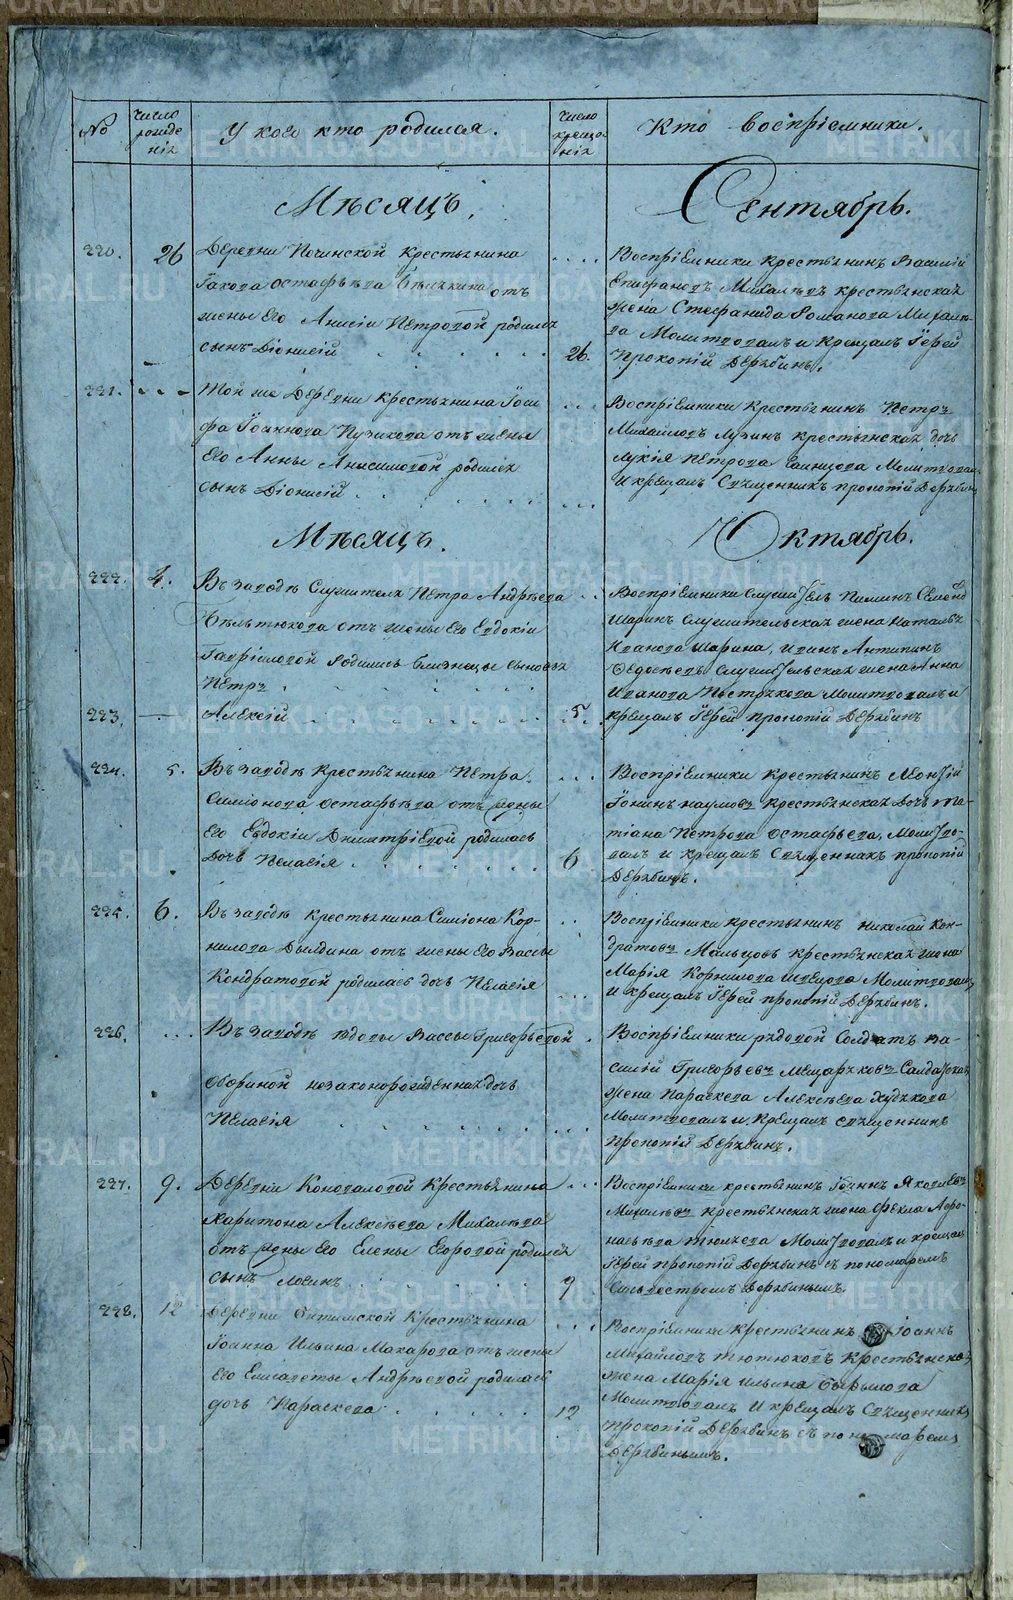 No
число рожде нія
У кого кто родился.
число креще нія
Кто воспріемники.
Мѣсяцъ.
Сентябрь.
220. 26
Деревни Починской крестьянина
Іакова Остафьева отъ
жены его Анисіи Петровой родился
сынъ Діонисій
26.
Воспріемники крестьянинъ Василій
Епифановъ Михалевъ крестьянская
жена Стефанида Романова Михале-
ва Молитвовалъ и крещалъ Іерей
Прокопій Дерябинъ.
221.
Той же Деревни крестьянина Іоси
фа Іоаннова Пузикова отъ жены
его Анны Анисимовой родился
сынъ Діонисій
Воспріемники крестьянинъ Петръ
Михайловъ Лузин крестьянская дочь
Лукія Петрова Молитвовалъ
и крещалъ Священникъ Прокопій Дерябинъ
Мѣсяцъ.
Октябрь.
222. 4.
Въ заводѣ Служителя Петра Андреева
Бѣльтюкова отъ жены его Евдокіи
Гавріиловой родились близнецы сыновья
Петръ
223. Алексій
5.
Воспріемники служитель Пиминъ
Шаринъ служительская жена Наталья
Иванова Шарина, и Иванъ Антипинъ
Федосѣевъ служительская жена Анна
Иванова Пестрякова Молитвовалъ и
крещалъ Іерей Прокопій Дерябинъ
224. 5.
Въ заводѣ крестьянина Петра
Симіонова Остафьева отъ жены
его Евдокіи Димитріевой родилась
дочь Пелагія
6
Воспріемники крестьянинъ Леонтій
Іонинъ Наумовъ крестьянская дочь Та-
тіана Петрова Остафьева, Молитво-
валъ и крещалъ Священникъ Прокопій
Дерябинъ.
225. 6.
Въ заводѣ крестьянина Симіона Кор-
нилова Дылдина отъ жены его Вассы
Кондратовой родилась дочь Пелагія
Воспріемники крестьянинъ Николай Кон-
дратовъ Мальцовъ крестьянская жена
Марія Корнилова Швецова Молитвовалъ
и крещалъ Іерей Прокопій Дерябинъ.
226.
Въ заводѣ вдовы Вассы Григорьевой
Обориной незаконорожденная дочь
Пелагія
Воспріемники рядовой Солдатъ Ва-
силій Григорьевъ Мещеряковъ Салдатская
жена Параскева Алексѣева Худякова
Молитвовалъ и крещалъ священникъ
Прокопій Дерябинъ.
227. 9.
Деревни Коноваловой Крестьянина
Харитона Алексѣева Михалева
отъ жены его Елены Егоровой родился
сынъ Логинъ
9
Воспріемники крестьянинъ Іоаннъ Яковлевъ
Михалевъ крестьянская жена Фекла Афо-
насьева Тюляева Молитвовалъ и крещалъ
Іерей Прокопій Дерябинъ съ пономаремъ
Сильвестромъ Дерябинымъ.
228. 12
Деревни крестьянина
Іоанна Ильина Макарова отъ жены
его Елисаветы Андреевой родилась
дочь Параскева
12
Воспріемники Крестьянинъ Іоаннъ
Михайловъ Тютюковъ Крестьянская
жена Марія Ильина Бырылова
Молитвовалъ и крещалъ Священникъ
Прокопій Дерябинъ съ пономаремъ
Дерябинымъ.
METRIKI.GASO-URAL.RU